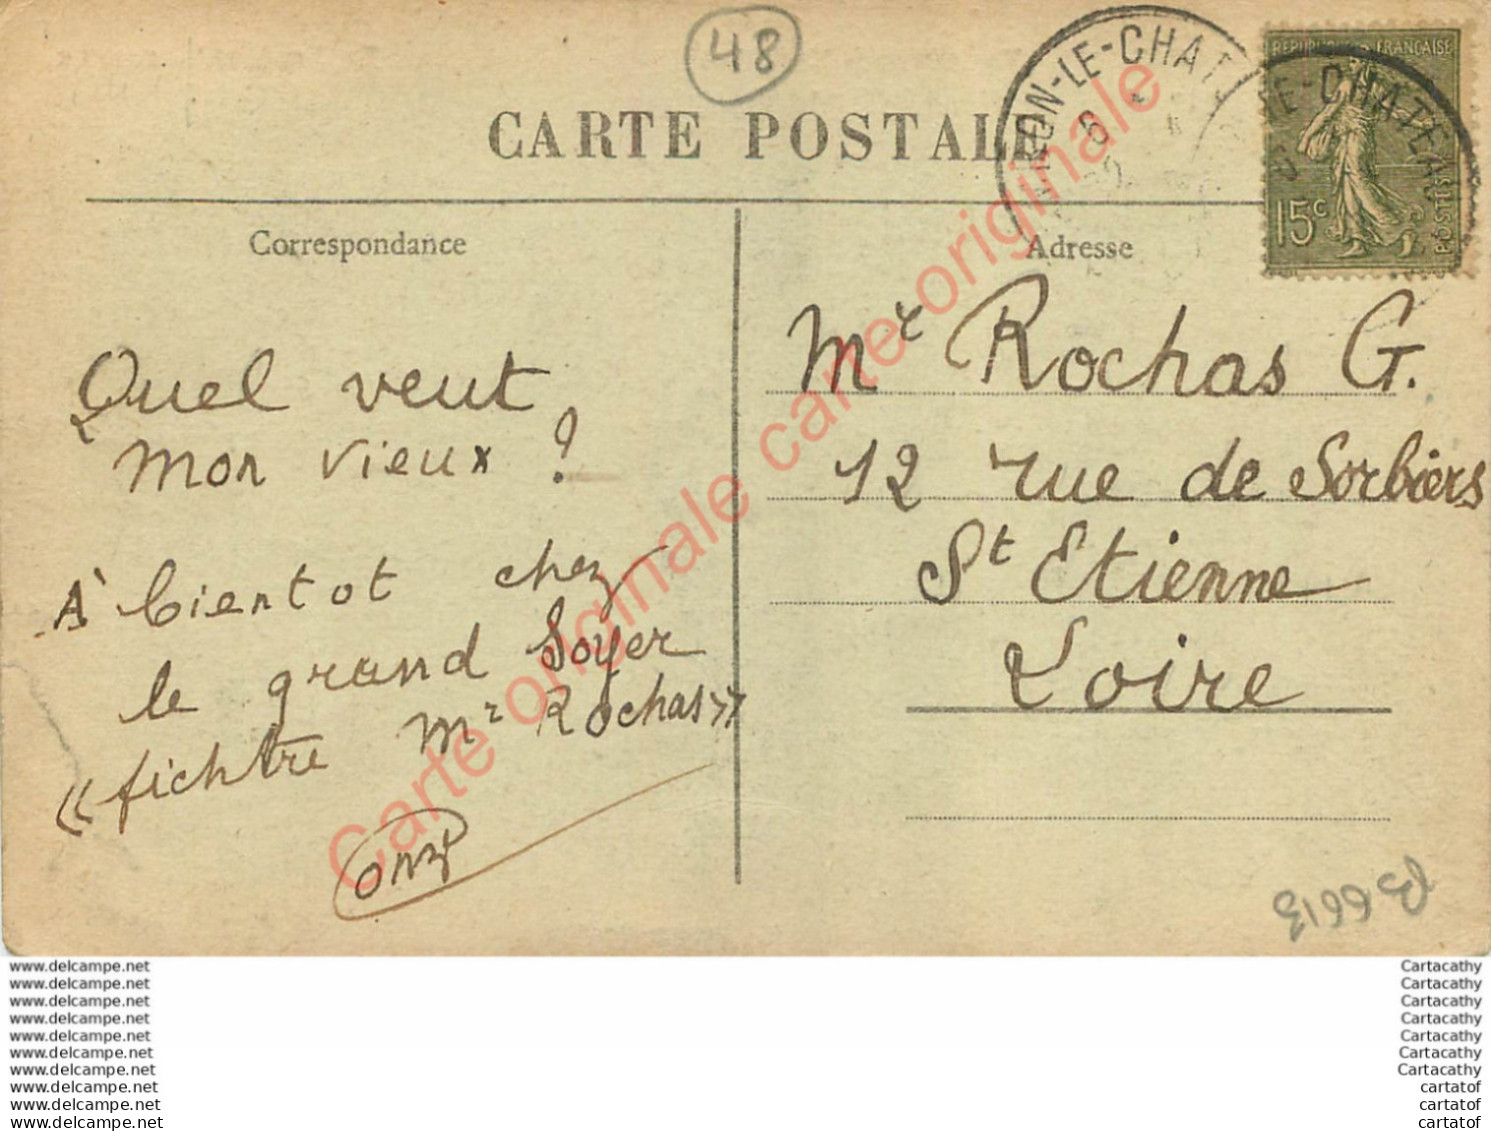 48
CARTE POSTALE
RON-LE-CHAT
6
LE-CHATEAU
REPUBLIQUE FRANÇAISE
15c
POSTES
Correspondance
Adresse
Quel veut
mon vieux ?
A' bientot chez
le grand Soyer
« fichtre Mr Rochas »
Mr Rochas G.
12 rue de Sorbiers
St Etienne
Loire
B 6613
Carte originale carte originale
www.delcampe.net
www.delcampe.net
www.delcampe.net
www.delcampe.net
www.delcampe.net
www.delcampe.net
www.delcampe.net
www.delcampe.net
www.delcampe.net
www.delcampe.net
Cartacathy
Cartacathy
Cartacathy
Cartacathy
Cartacathy
Cartacathy
Cartacathy
cartatof
cartatof
cartatof